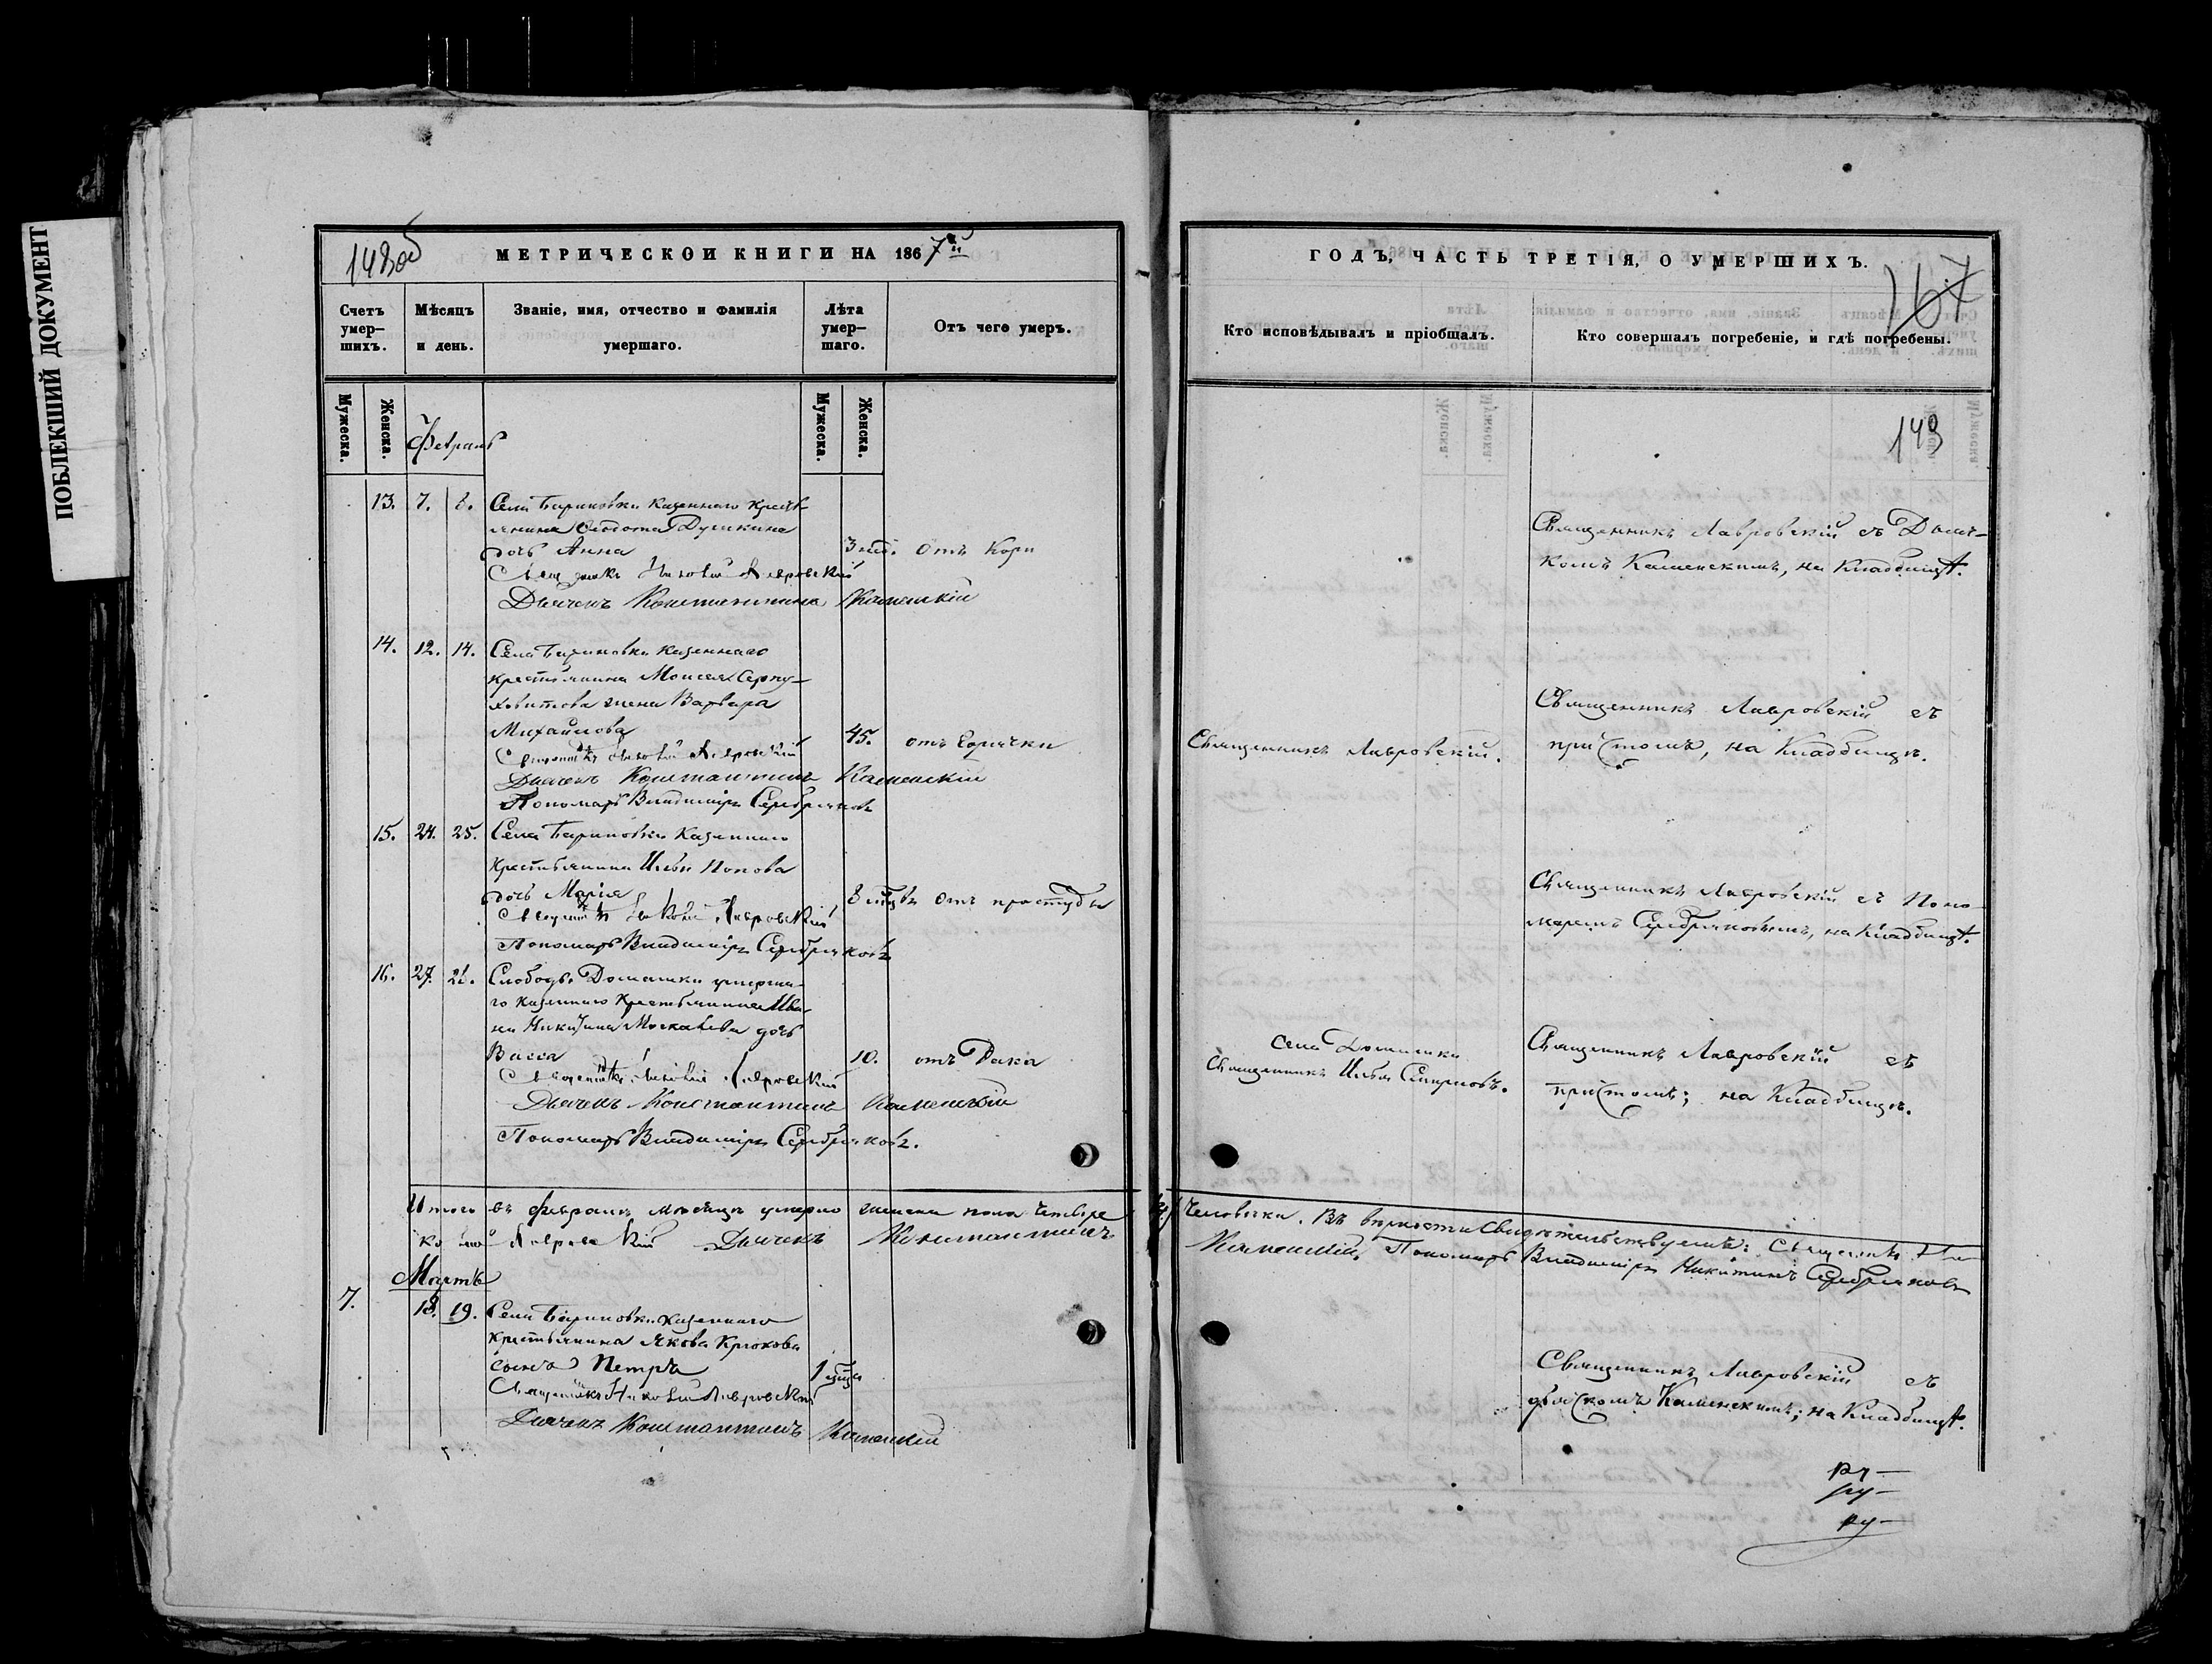 ПОБЛЕКШИЙ ДОКУМЕНТ
148об
МЕТРИЧЕСКОИ КНИГИ НА 1867й
Счетъ умер-шихъ.
Мѣсяцъ и день.
Званіе, имя, отчество и фамилія умершаго.
Лѣта умер-шаго.
Отъ чего умеръ.
Мужеска.
Женска.
Февраль
Мужеска.
Женска.
13. 7. 8. Села Бариновки казеннаго крестъ
янина Ѳедота Душкина
дочь Анна 3 отъ Кори
Священникъ Лавровскій
Дьячекъ Константинъ Каменскій
14. 12. 14. Села Бариновки казеннаго
крестьянина Моисея Серпу-
ховитова жена Варвара
Михайлова 45. отъ Горячки
Лавровскій
Дьячекъ Константинъ Каменскій
Пономарь Владиміръ Серебряковъ
15. 24. 25. Села Бариновки казеннаго
крестьянина Ильи Попова
дочь Марія 8 отъ простуды
Лавровскій
Пономарь Владиміръ Серебряковъ
16. 27. 28. Слободы Домашки умерша-
го казеннаго крестьянина Ива-
на Никитина дочь
Васса 10. отъ Рака
Лавровскій
Дьячекъ Константинъ Каменскій
Пономарь Владиміръ Серебряковъ.
Итого въ февралѣ мѣсяцѣ умерло женска пола четыре
Лавровскій Дьячекъ Константинъ
Мартъ
7. 18. 19. Села Бариновки казеннаго
крестьянина Якова Крюкова
сынъ Петръ 1
Священникъ Николай Лавровскій
Дьячекъ Константинъ Каменскій
ГОДЪ, ЧАСТЬ ТРЕТІЯ, О УМЕРШИХЪ.
167
Кто исповѣдывалъ и пріобщалъ.
Кто совершалъ погребеніе, и гдѣ погребены.
149
Священникъ Лавровскій съ Дьяч-
комъ Каменскимъ, на Кладбищѣ.
Священникъ Лавровскій.
Священникъ Лавровскій съ
причтомъ, на Кладбищѣ.
Священникъ Лавровскій съ Поно-
маремъ Серебряковымъ, на Кладбищѣ.
Села Домашки
Священникъ Илья Смирновъ.
Священникъ Лавровскій съ
причтомъ; на Кладбищѣ.
человѣка. Въ вѣрности свидѣтельствуемъ:
Каменскій, Пономарь Владиміръ Никитинъ Серебряковъ
Священникъ Лавровскій съ
дьячкомъ Каменскимъ; на Кладбищѣ.